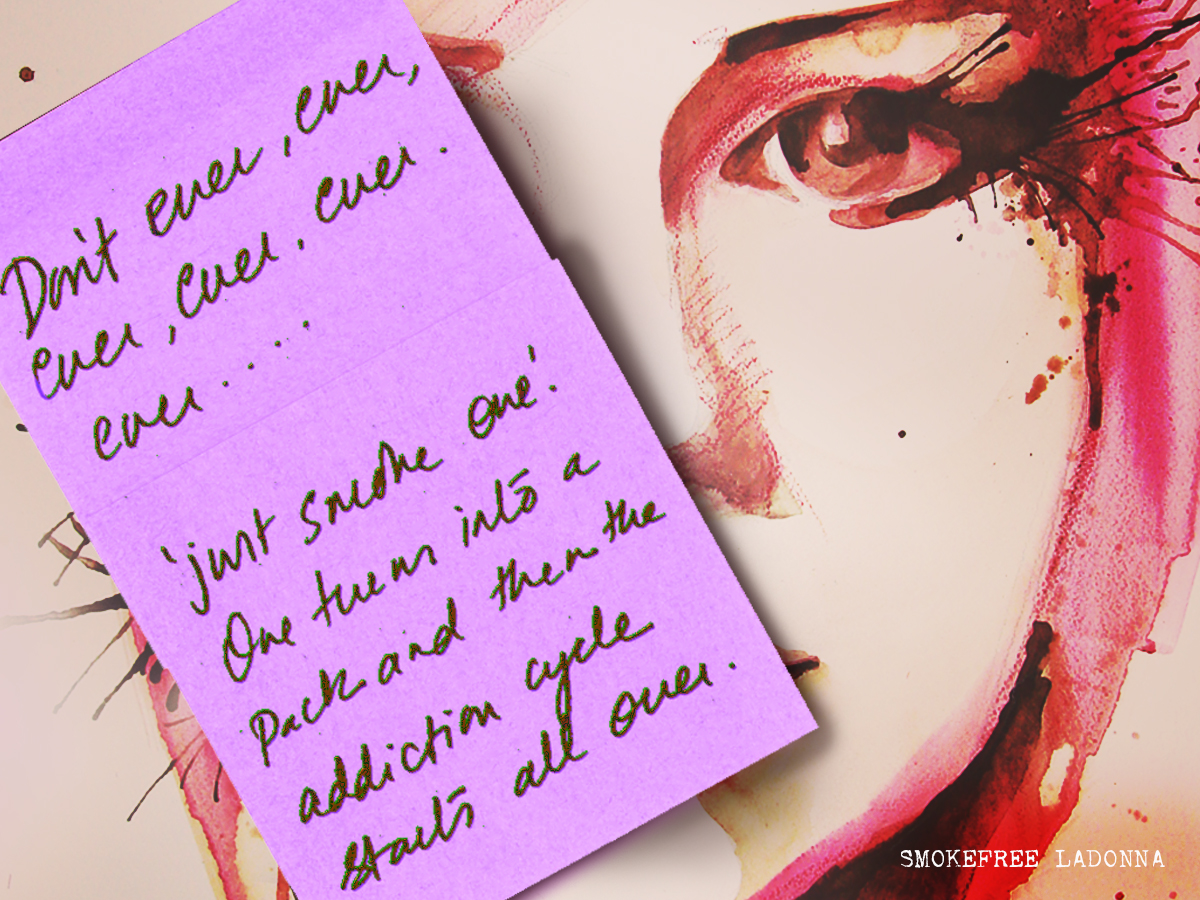 Don't ever, ever,
ever, ever, ever.
ever....
'just smoke one'.
One turns into a
pack and then the
addiction cycle
starts all over.
SMOKEFREE LADONNA